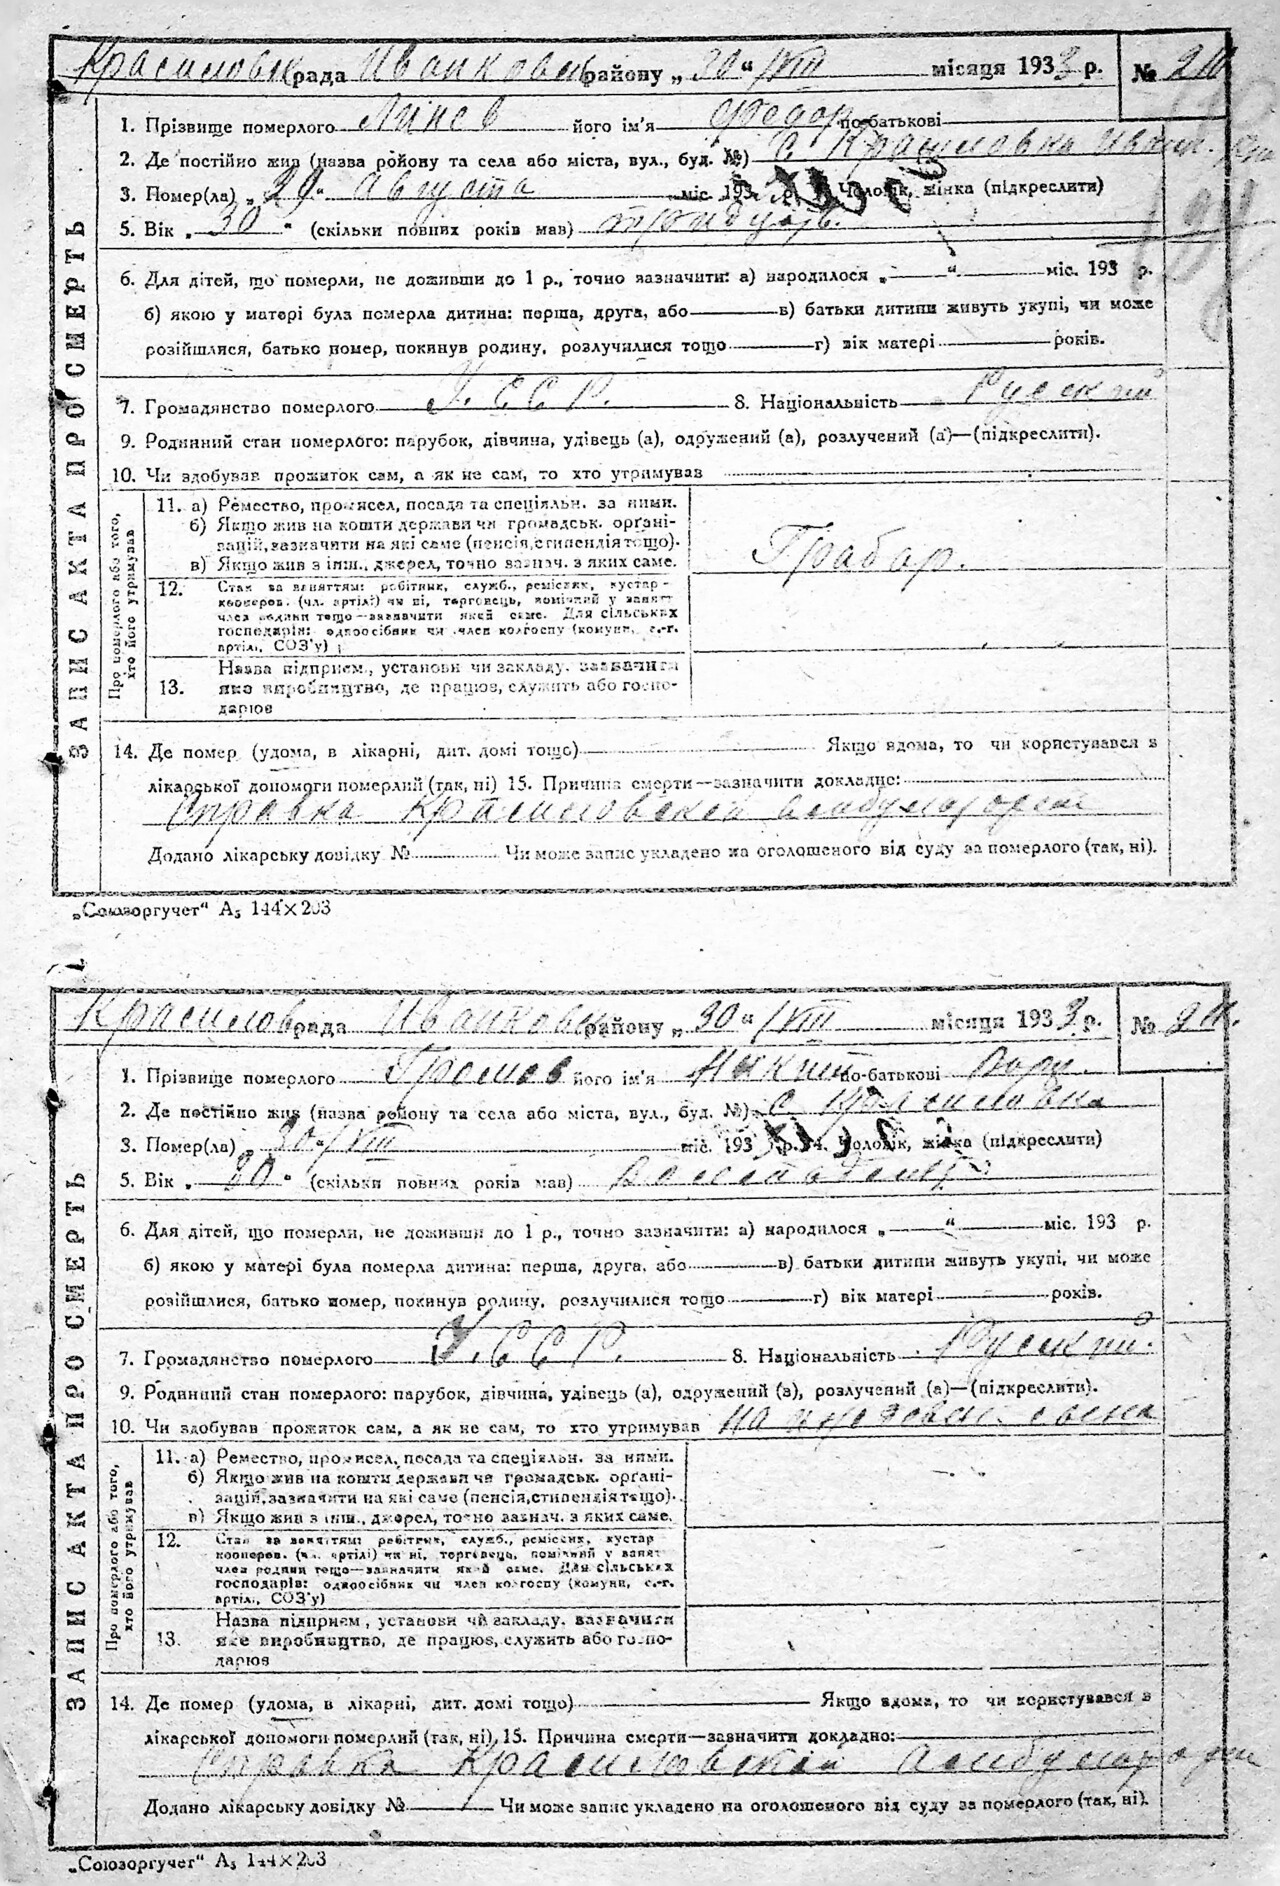 Красиловск рада Иванковск району „30“ /VIII місяця 1933 р. № 210
1. Прізвище померлого Линев його ім'я Федор по-батькові
2. Де постійно жив (назва ройону та села або міста, вул., буд. №) С Красиловка Иванк.
3. Помер(ла) „29“ Августа міс. 193 р. Чоловік, жінка (підкреслити)
5. Вік „30“ (скільки повних років мав) тридцять.
6. Для дітей, що померли, не доживши до 1 р., точно зазначити: а) народилося „ “ міс. 193 р.
б) якою у матері була померла дитина: перша, друга, або в) батьки дитини живуть укупі, чи може
розійшлися, батько помер, покинув родину, розлучилися тощо г) вік матері років.
7. Громадянство померлого У.ССР. 8. Національність Руский
9. Родинний стан померлого: парубок, дівчина, удівець (а), одружений (а), розлучений (а)—(підкреслити).
10. Чи здобував прожиток сам, а як не сам, то хто утримував
ЗАПИС АКТА ПРО СМЕРТЬ
Про померлого або того, хто його утримував
11. а) Ремество, промисел, посада та спеціяльн. за ними.
б) Якщо жив на кошти держави чи громадськ. орґані-
зацій, зазначити на які саме (пенсія, стипендія тощо).
в) Якщо жив з інш., джерел, точно зазнач. з яких саме.
Грабар.
12. Стан за заняттям: робітник, служб., ремісник, кустар-
кооперов. (чл. артілі) чи ні, торговець, помічний у занят
член родини тощо—зазначити який саме. Для сільських
господарів: одноосібник чи член колгоспу (комуни, с.-г.
артілі, СОЗ'у)
13. Назва підприєм., установи чи закладу. зазначити
яке виробництво, де працює, служить або госпо-
дарює
14. Де помер (удома, в лікарні, дит. домі тощо) Якщо вдома, то чи користувався з
лікарської допомоги померлий (так, ні) 15. Причина смерти—зазначити докладно:
Справка Красиловской амбулатории
Додано лікарську довідку № Чи може запис укладено на оголошеного від суду за померлого (так, ні).
„Союзоргучет“ А₅ 144×203
Красилов рада Иванковск району „30“ /VIII місяця 1933 р. № 211.
1. Прізвище померлого Громов його ім'я Никит по-батькові
2. Де постійно жив (назва ройону та села або міста, вул., буд. №) С Красиловка
3. Помер(ла) „30“/VIII міс. 193 р. 4. Чоловік, жінка (підкреслити)
5. Вік „80“ (скільки повних років мав) Восемьдесят
6. Для дітей, що померли, не доживши до 1 р., точно зазначити: а) народилося „ “ міс. 193 р.
б) якою у матері була померла дитина: перша, друга, або в) батьки дитини живуть укупі, чи може
розійшлися, батько помер, покинув родину, розлучилися тощо г) вік матері років.
7. Громадянство померлого У.ССР. 8. Національність Руский.
9. Родинний стан померлого: парубок, дівчина, удівець (а), одружений (а), розлучений (а)—(підкреслити).
10. Чи здобував прожиток сам, а як не сам, то хто утримував На иждевен. сына
ЗАПИС АКТА ПРО СМЕРТЬ
Про померлого або того, хто його утримував
11. а) Ремество, промисел, посада та спеціяльн. за ними.
б) Якщо жив на кошти держави чи громадськ. орґані-
зацій, зазначити на які саме (пенсія, стипендія тощо).
в) Якщо жив з інш., джерел, точно зазнач. з яких саме.
12. Стан за заняттям: робітник, служб., ремісник, кустар
кооперов. (чл. артілі) чи ні, торговець, помічний у занят
член родини тощо—зазначити який саме. Для сільських
господарів: одноосібник чи член колгоспу (комуни, с.-г.
артілі, СОЗ'у)
13. Назва підприєм, установи чи закладу. зазначити
яке виробництво, де працює, служить або госпо-
дарює
14. Де помер (удома, в лікарні, дит. домі тощо) Якщо вдома, то чи користувався з
лікарської допомоги померлий (так, ні). 15. Причина смерти—зазначити докладно:
Справка Красиловской Амбулатории
Додано лікарську довідку № Чи може запис укладено на оголошеного від суду за померлого (так, ні).
„Союзоргучет“ А₅ 144×203